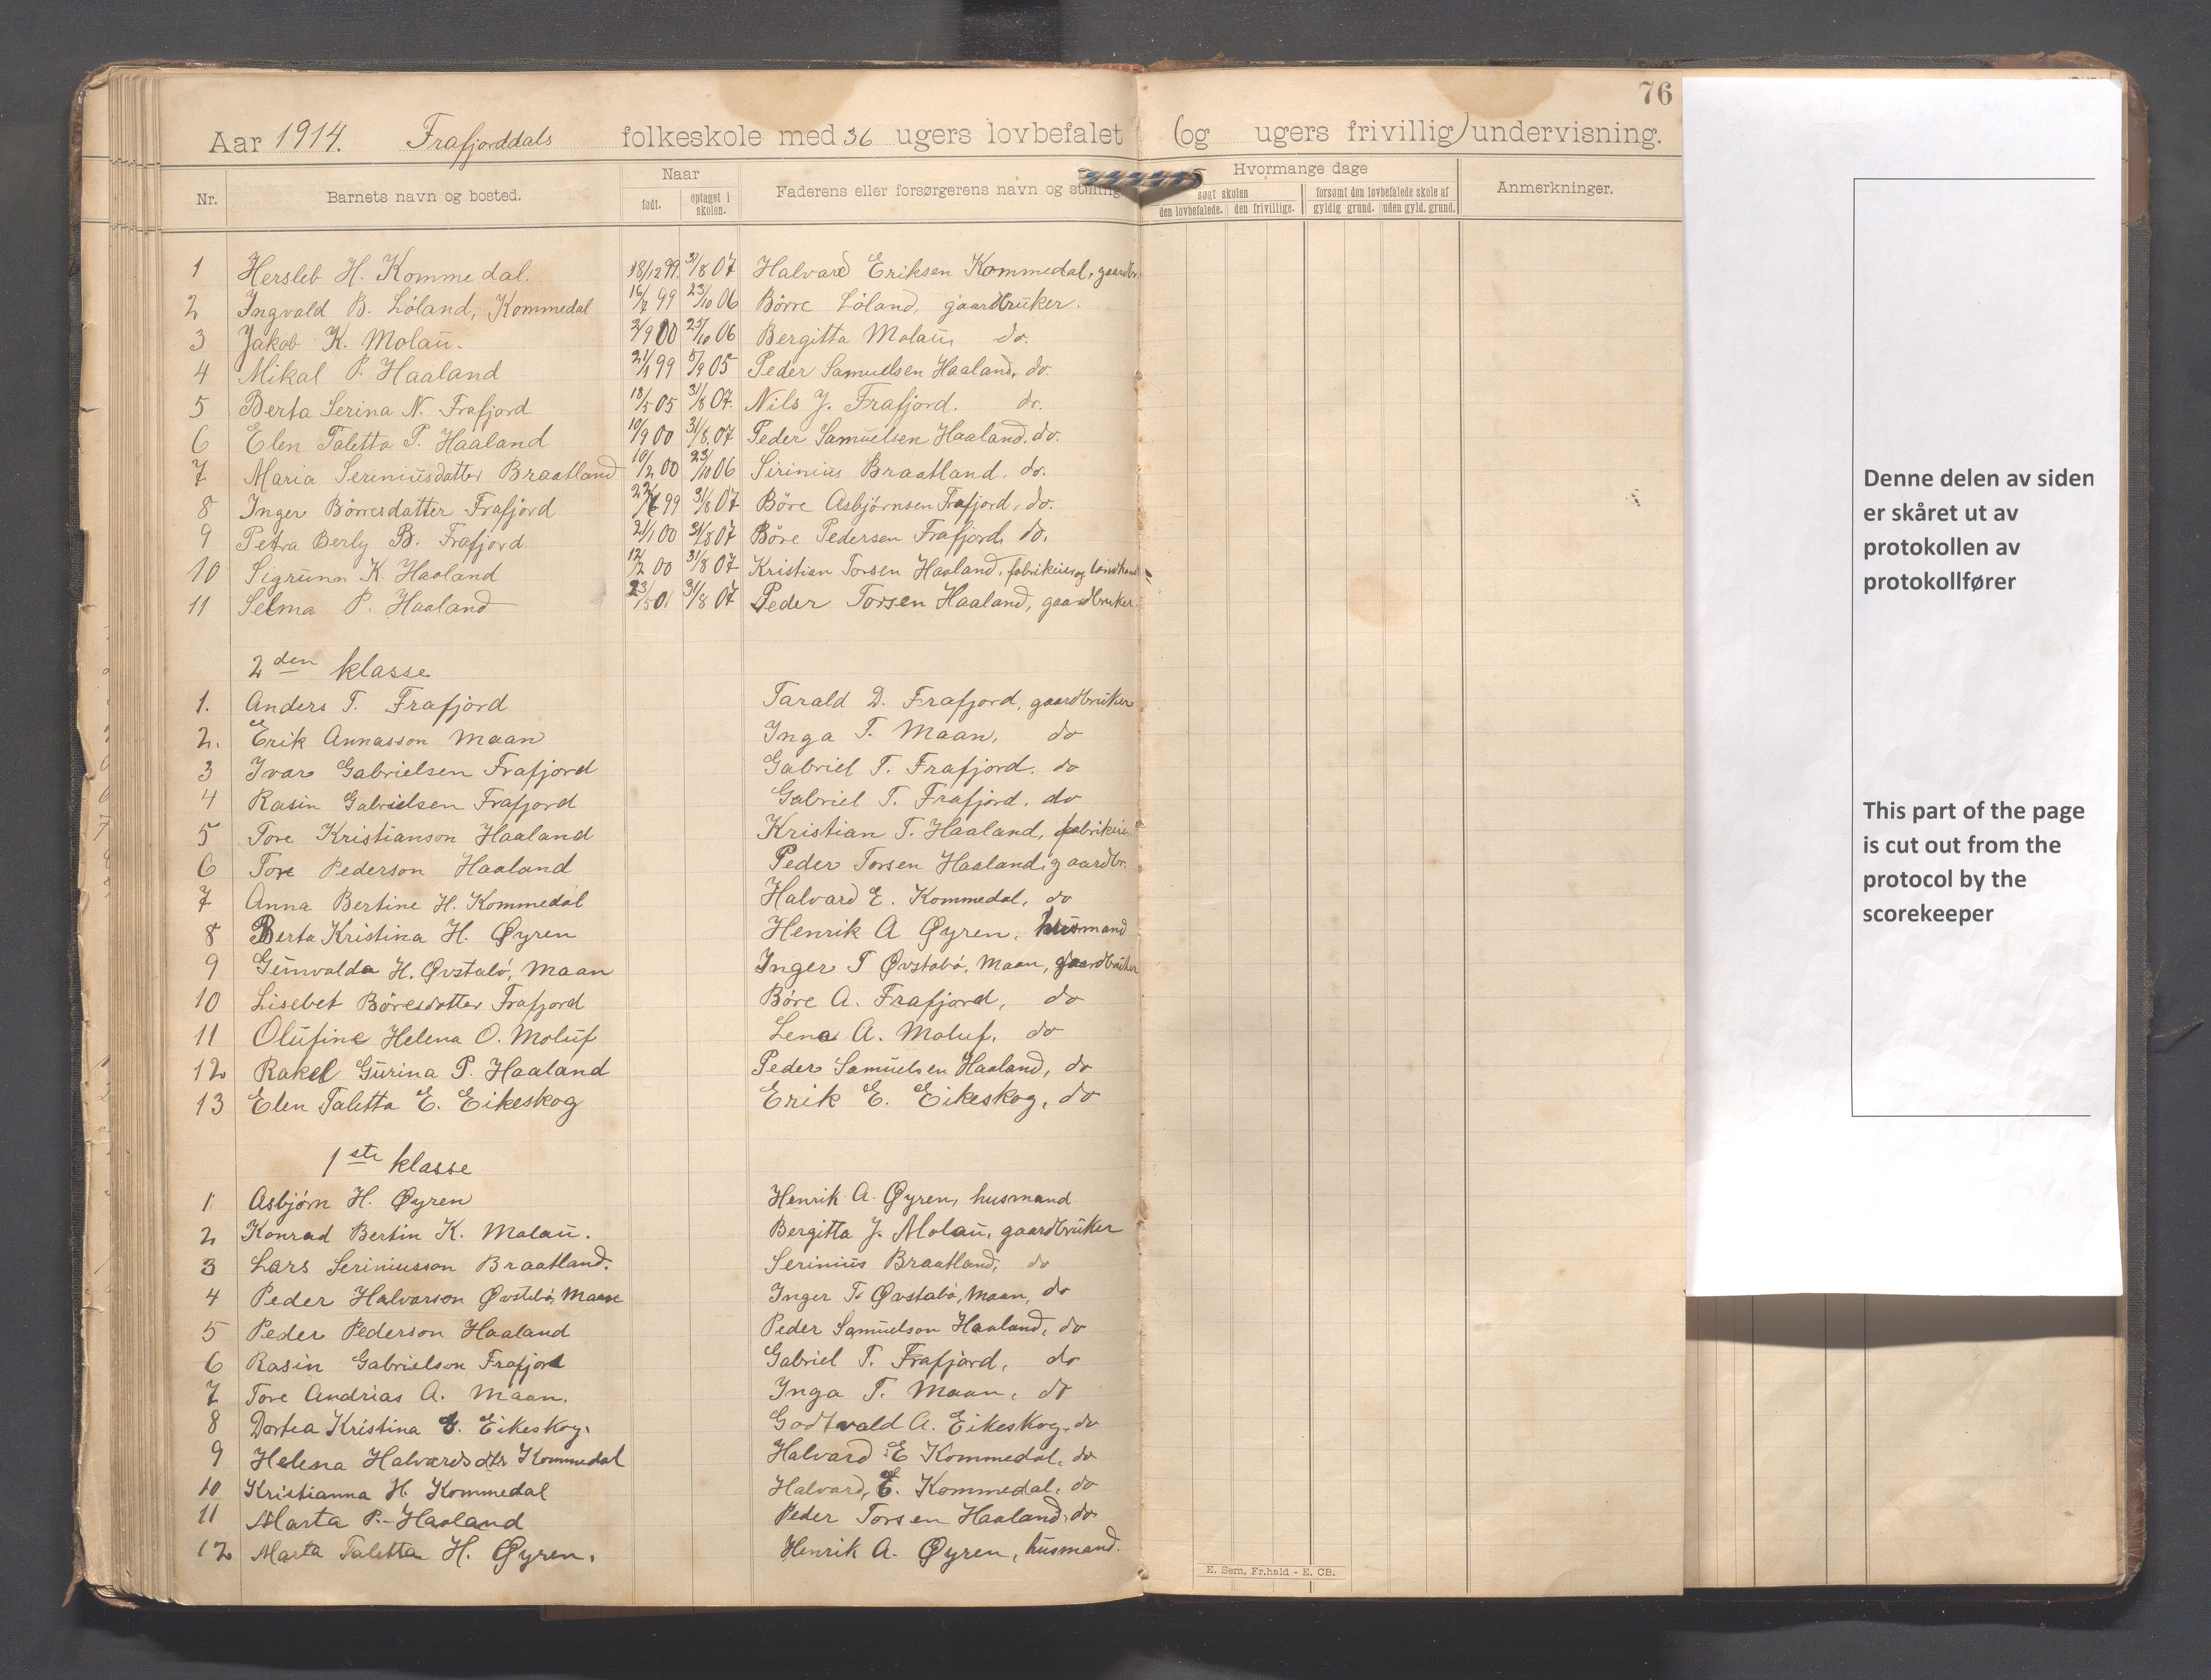 76
Aar 1914. Frafjorddals folkeskole med 36 ugers lovbefalet (og ugers frivillig) undervisning.
Nr. Barnets navn og bosted. Naar født. optaget i skolen. Faderens eller forsørgerens navn og stilling Hvormange dage søgt skolen den lovbefalede. den frivillige. forsømt den lovbefalede skole af gyldig grund. uden gyld. grund. Anmerkninger.
1 Hersleb H. Kommedal. 18/12 99. 31/8 07 Halvard Eriksen Kommedal, gaardbr.
2 Ingvald B. Löland, Kommedal 16/7 99 23/10 06 Börre Löland, gaardbruker.
3 Jakob K. Molaü. 2/9 00 25/10 06 Bergitta Molaü, do.
4 Mikal P. Haaland 21/1 99 5/9 05 Peder Samuelsen Haaland, do.
5 Berta Serina N. Frafjord 18/5 05 31/8 07. Nils J. Frafjord. do.
6 Elen Taletta P. Haaland 10/9 00 31/8. 07 Peder Samuelsen Haaland. do.
7 Maria Sereniusdatter Braatland 10/2 00 23/10 06 Sirinius Braatland. do.
8 Inger Börresdatter Frafjord 22/6 99 31/8 07 Böre Asbjörnsen Frafjord, do.
9 Petra Berly B. Frafjord. 21/1 00 31/8 07 Böre Pedersen Frafjord, do.
10 Sigrunn K. Haaland 12/2 00 31/8 07 Kristian Torsen Haaland, fabrikeier og landhand
11 Selma P. Haaland 23/5 01 31/8 07 Peder Torsen Haaland, gaardbruker.
2den klasse
1. Anders T. Frafjord Tarald D. Frafjord, gaardbruker
2. Erik Annasson Maan Inga T. Maan, do
3 Ivar Gabrielsen Frafjord Gabriel T. Frafjord. do
4 Rasin Gabrielsen Frafjord Gabriel T. Frafjord, do
5 Tore Kristianson Haaland Kristian T. Haaland, fabrikeier
6 Tore Pederson Haaland Peder Torsen Haaland, gaardbr.
7 Anna Bertine H. Kommedal Halvard E. Kommedal, do
8 Berta Kristina H. Øyren Henrik A Øyren, husmand
9 Gunvalda H. Øvstabö, Maan Inger T Øvstabö, Maan, gaardbruker
10 Lisebet Böresdatter Frafjord Böre A. Frafjord, do
11 Olüfine Helena O. Molüf Lena A. Moluf. do
12 Rakel Gürina P. Haaland Peder Samuelsen Haaland, do
13 Elen Taletta E. Eikeskog Erik E. Eikeskog, do
1ste klasse
1 Asbjörn H. Øyren Henrik A. Øyren, husmand
2 Konrad Bertin K. Molaü. Bergitta J. Molaü, gaardbrüker
3 Lars Seriniusson Braatland. Serinius Braatland, do
4 Peder Halvarson Øvstebö, Maan Inger T. Øvstabö, Maan, do
5 Peder Pederson Haaland Peder Samuelson Haaland, do
6 Rasin Gabrielson Frafjord Gabriel T. Frafjord, do
7 Tore Andrias A. Maan. Inga T. Maan, do
8 Dortea Kristina G. Eikeskog. Godtvald A. Eikeskog, do
9 Helena Halvardsdtr Kommedal Halvard E Kommedal, do
10 Kristianna H. Kommedal Halvard, E. Kommedal, do
11 Marta P. Haaland Peder Torsen Haaland, do
12 Marta Taletta H. Øyren. Henrik A. Øyren, husmand.
E. Sem, Fr.hald - E. CB.
Denne delen av siden
er skåret ut av
protokollen av
protokollfører
This part of the page
is cut out from the
protocol by the
scorekeeper